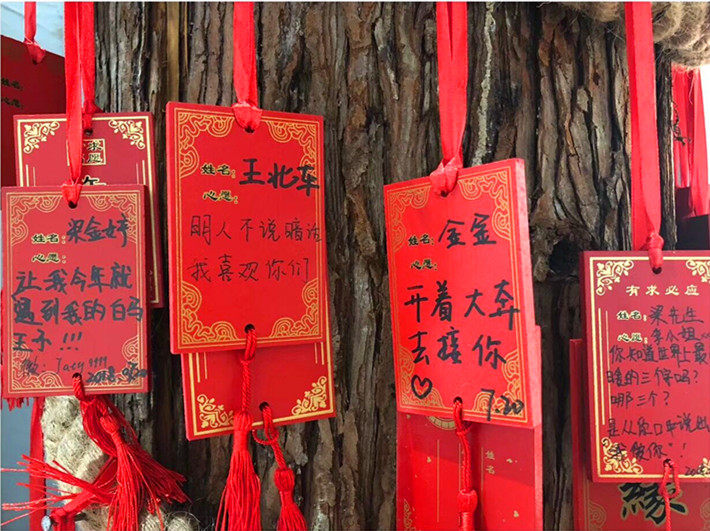 求
愿
姓名:梁金婷
心愿:
让我今年就
遇到我的白马
王子!!!
姓名:王北车
心愿:
明人不说暗话
我喜欢你们
姓名:金宝
心愿:
开着大奔
去接你
♡ 7.20
姓名
有求必应
姓名:梁先生
心愿:李小姐
你知道世界上最
啥的三个字吗?
哪三个?
是从你口中说出
缘